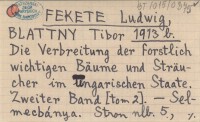 FEKETE Ludwig,
BLATTNY Tibor 1913 b.
Die Verbreitung der Forstlich
wichtigen Bäume und Sträu-
cher im Ungarischen Staate.
Zweiter Band [tom 2]. — Sel-
mecbánya. Stron nlb. 5,